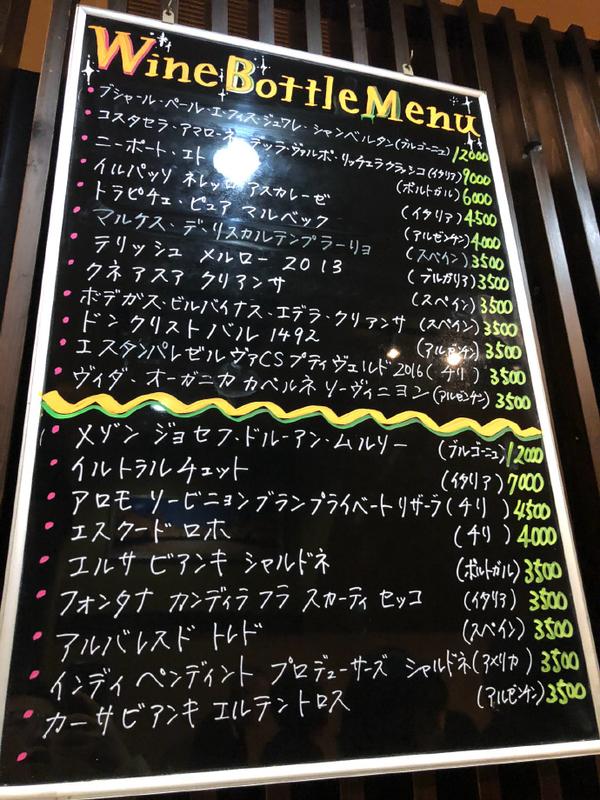 Wine Bottle Menu
ブシャール・ペール・エ・フィス・ジュヴレ・シャンベルタン(ブルゴーニュ) 12000
コスタセラ・アマローネ・デッラ・ヴァルポリッチェラクラシコ(イタリア) 9000
ニーポート・エト (ポルトガル) 6000
イルパッソ ネレッロ アスカレーゼ (イタリア) 4500
トラピチェ・ピュア マルベック (アルゼンチン) 4000
マルケス・デ・リスカルテンプラーリョ (スペイン) 3500
テリッシュ メルロー 2013 (ブルガリア) 3500
クネ アスア クリアンサ (スペイン) 3500
ボデガス・ビルバイナス・エデラ・クリアンサ (スペイン) 3500
ドン クリストバル 1492 (アルゼンチン) 3500
エスタンパレゼルヴァCS プティヴェルド2016 (チリ) 3500
ヴィダ・オーガニカ カベルネ ソーヴィニヨン (アルゼンチン) 3500
メゾン ジョセフ・ドルーアン・ムルソー (ブルゴーニュ) 12000
イルトラルチェット (イタリア) 7000
アロモ ソービニョンブランプライベートリザーラ (チリ) 4500
エスクード ロホ (チリ) 4000
エルサ ビアンキ シャルドネ (ポルトガル) 3500
フォンタナ カンディラ フラ スカーティ セッコ (イタリア) 3500
アルバレスド トレド (スペイン) 3500
インディ ペンディント プロデューサーズ シャルドネ (アメリカ) 3500
カーサ ビアンキ エルテントロス (アルゼンチン) 3500